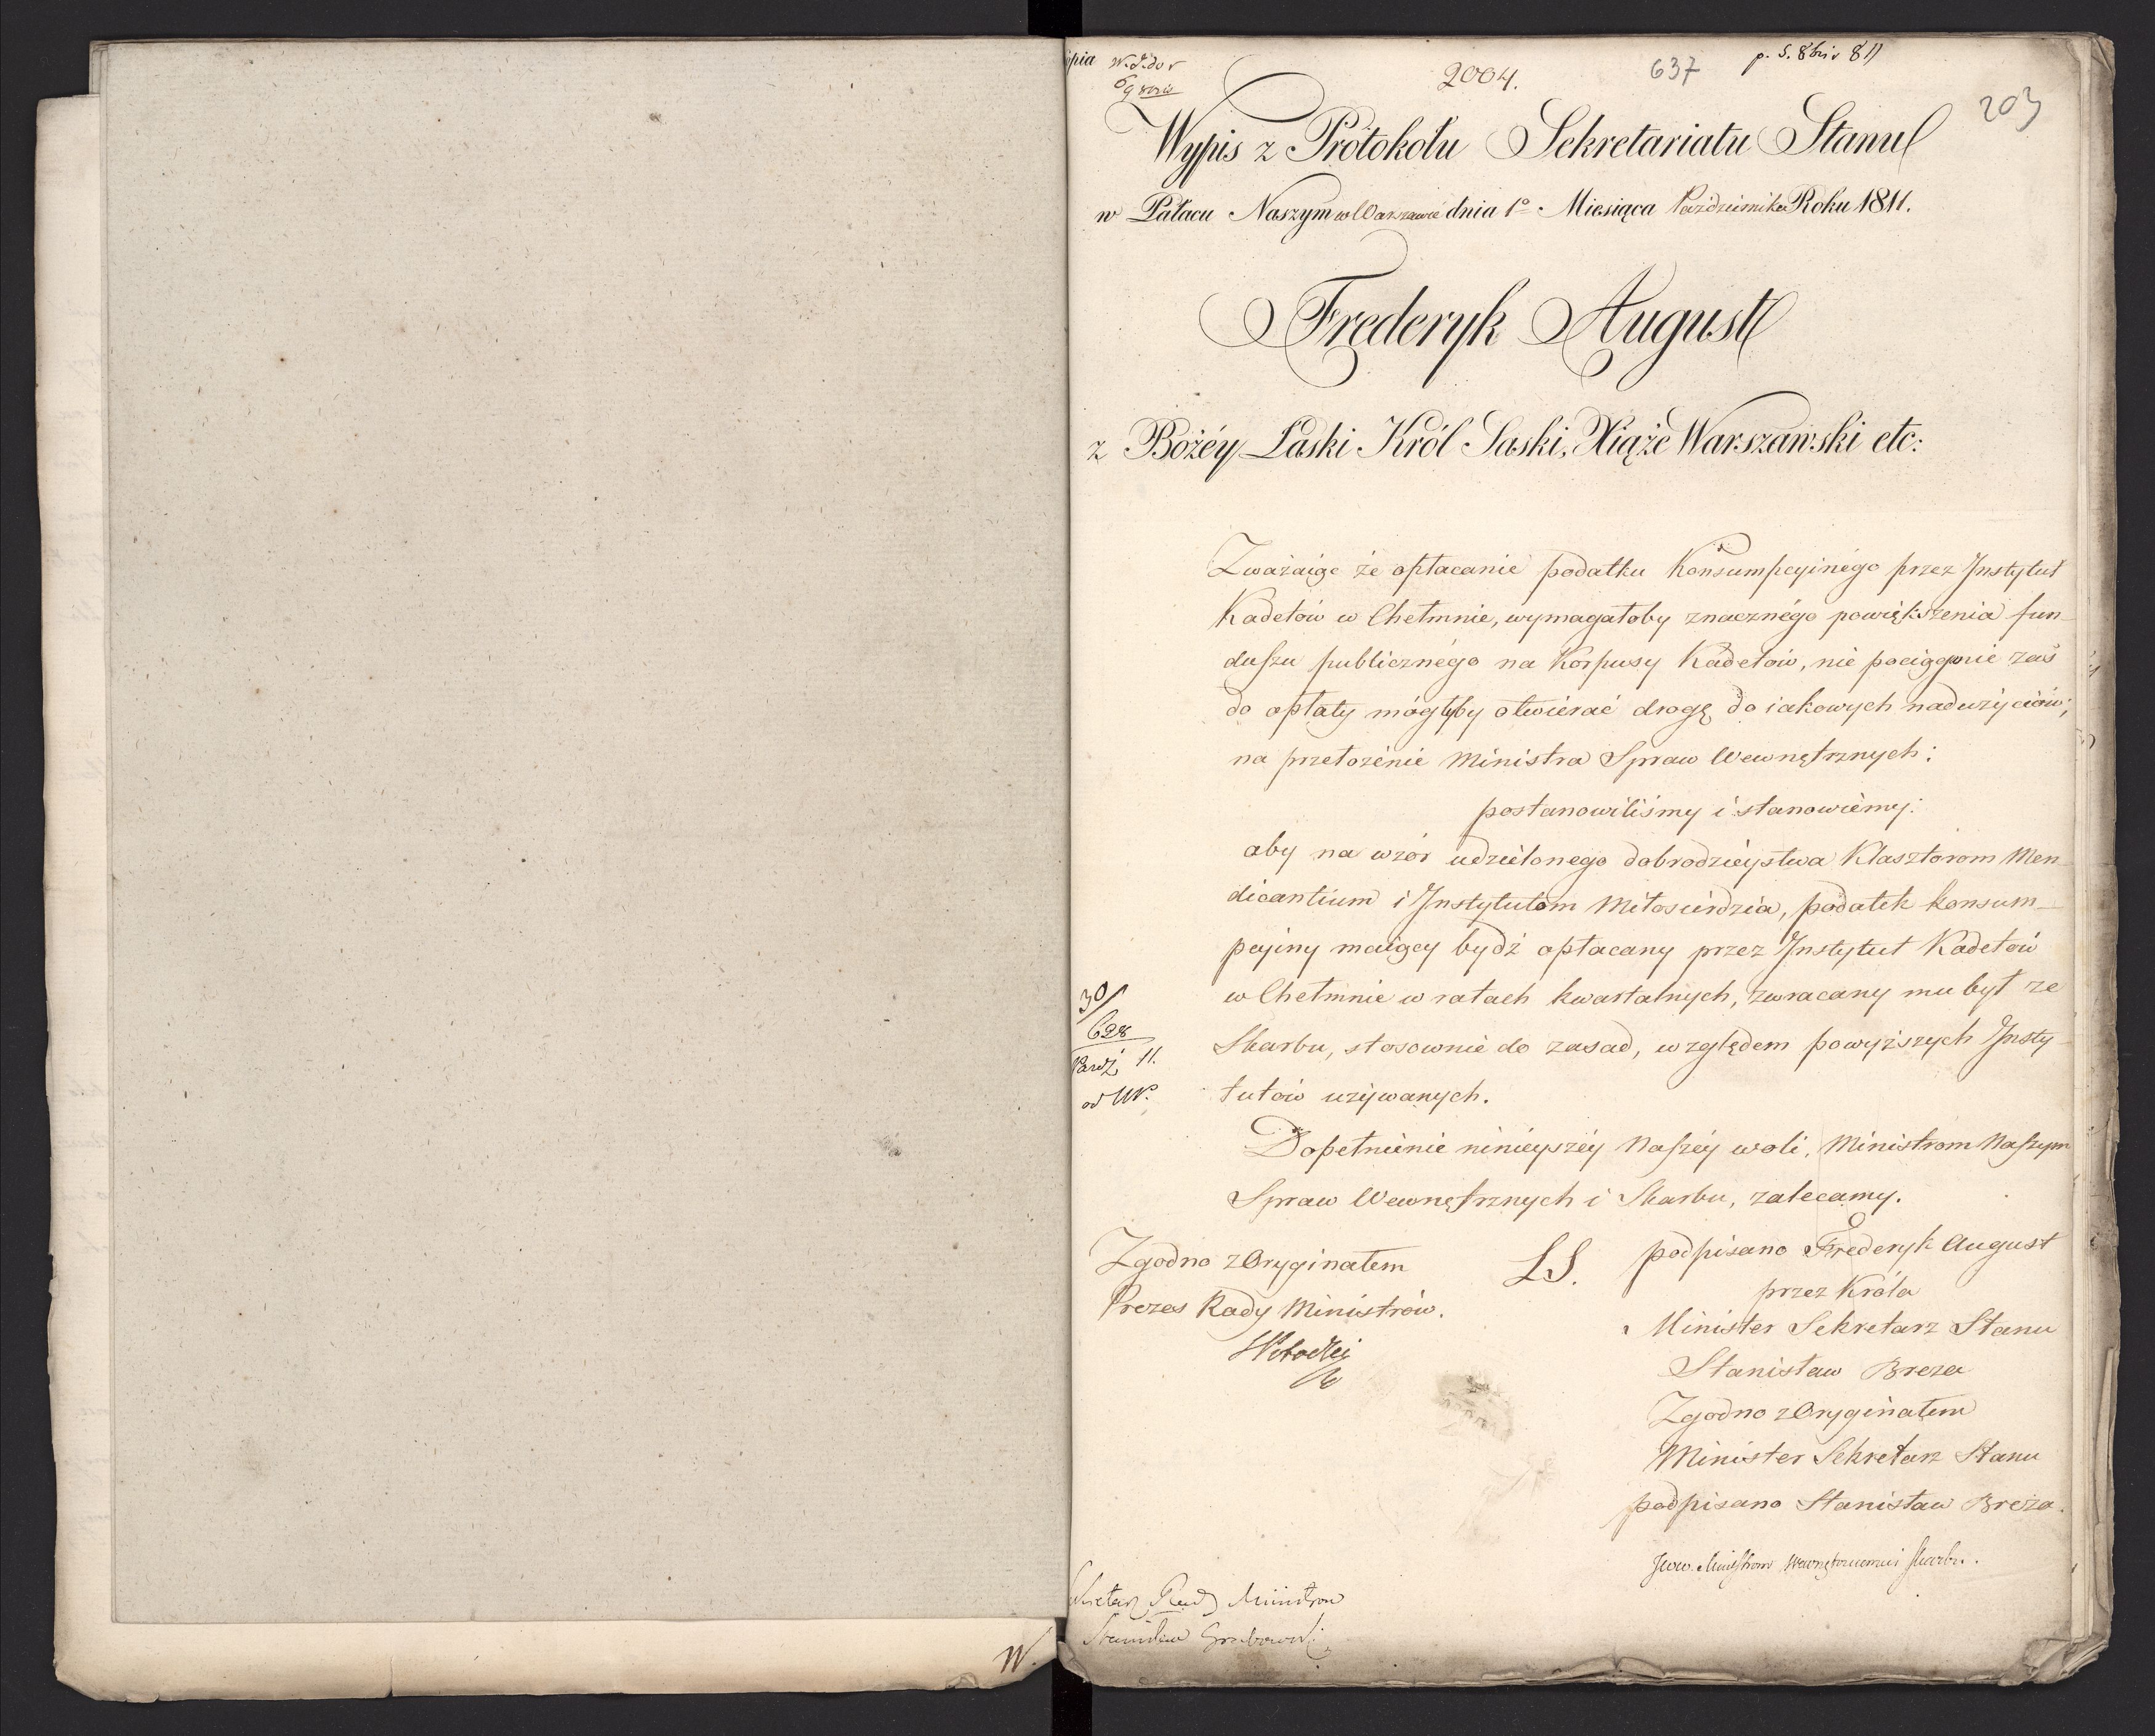 2004.
637
p. 5. 8bris 811
203
Wypis z Protokołu Sekretariatu Stanu
w Pałacu Naszym w Warszawie dnia 1º Miesiąca Października Roku 1811.
Frederyk August
z Bożéy Łaski Król Saski, Xiąże Warszawski etc:
Zważaiąc że opłacanie podatku Konsumpcyinégo przez Jnstytut
Kadetów w Chełmnie, wymagałoby znacznégo powiększenia fun-
duszu publicznégo na Korpusy Kadetów, nie pociągnienie zaś
do opłaty mógłyby otwiérać drogę do iakowych nadużyciów;
na przełożenie Ministra Spraw Wewnętrznych:
postanowiliśmy i stanowiémy:
aby na wzór udzielonego dobrodzieystwa Klasztorom Men-
dicantium i Jnstytutom Miłosierdzia, podatek konsum-
pcyiny maiący bydź opłacany przez Jnstytut Kadetów
w Chełmnie w ratach kwartalnych, zwracany mu był ze
Skarbu, stosownie do zasad, względem powyższych Jnsty-
tutów używanych.
30/
628
Paźdź 11.
Dopełnienie ninieyszéy Naszéy woli, Ministrom Naszym
Spraw Wewnętrznych i Skarbu, zalecamy.
Zgodno z Oryginałem
Prezes Rady Ministrów.
LS.
podpisano Frederyk August
przez Króla
Minister Sekretarz Stanu
Stanisław Breza
Zgodno z Oryginałem
Minister Sekretarz Stanu
podpisano Stanisław Breza.
Sekretarz Rady Ministrow
Stanisław Grabowski
W.